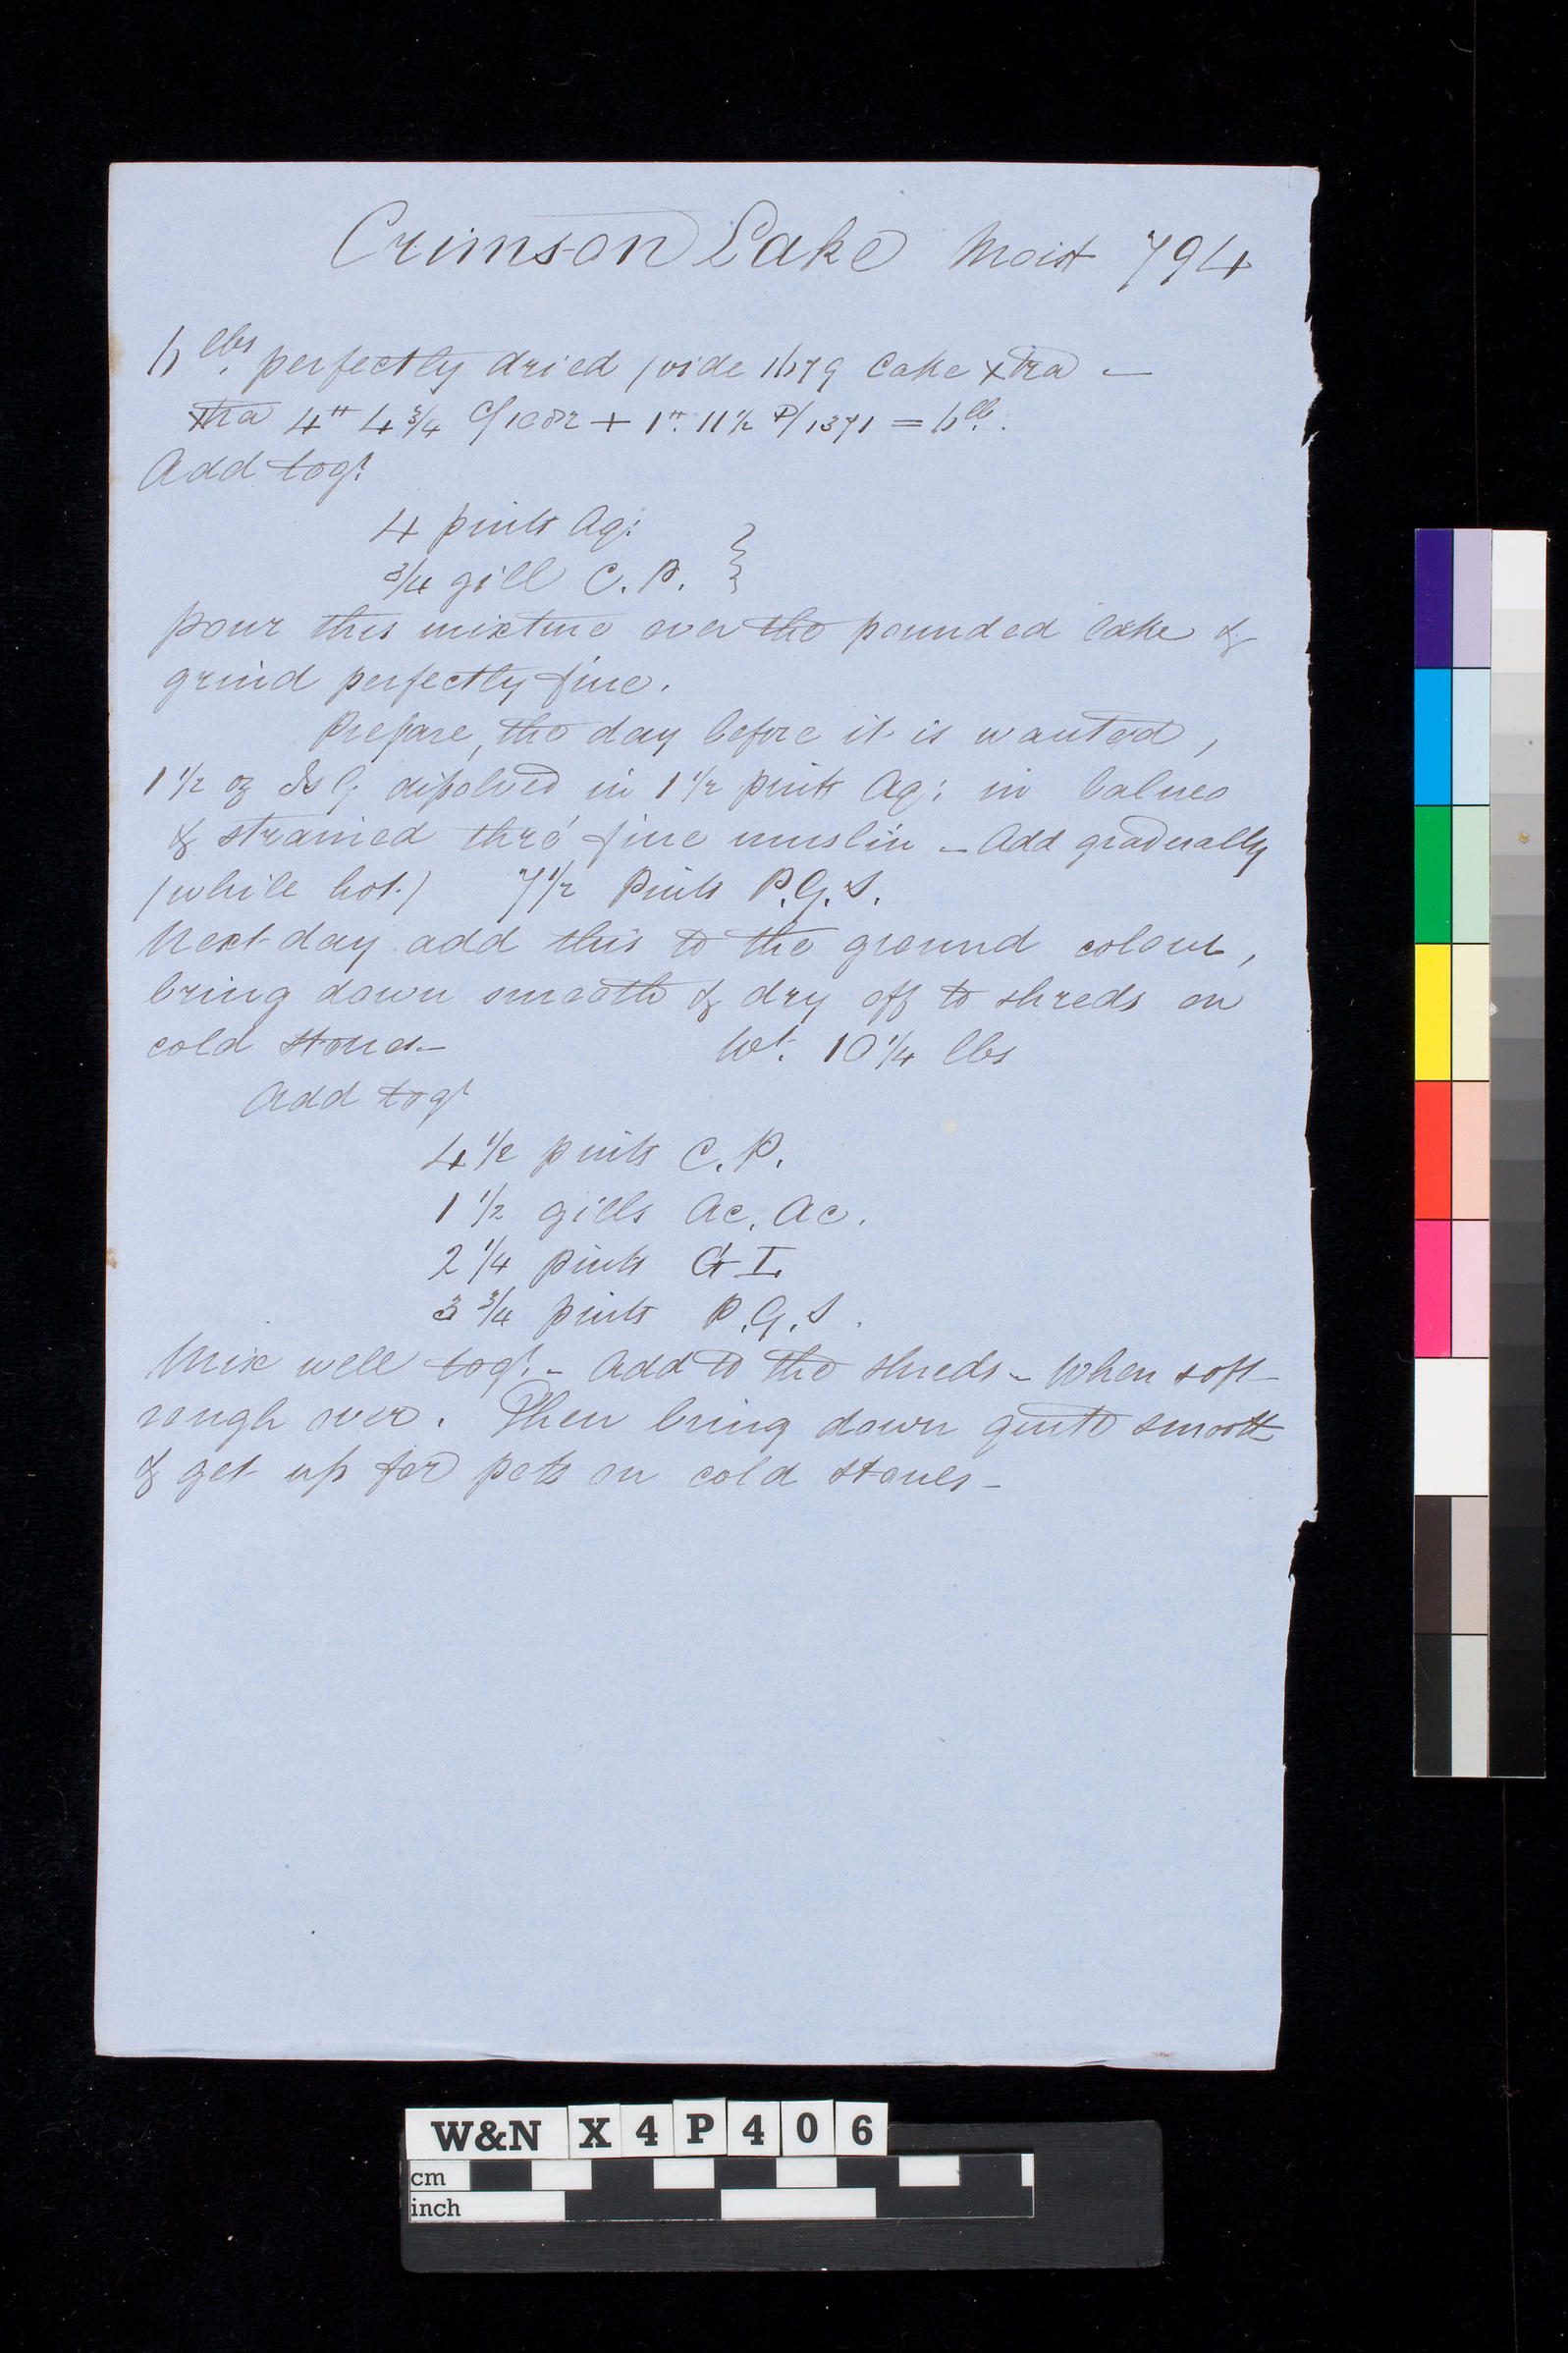 Crimson Lake Moist 794
6 lbs perfectly dried (vide 1679 Cake xtra –
xtra 4" 4 3/4 C/1082 + 1" 11 1/2 P/1371 = 6 lb.
Add togr
4 pints Aq:
3/4 gill C. P. }
pour this mixture over the pounded lake &
grind perfectly fine.
Prepare, the day before it is wanted,
1 1/2 oz Is G dissolved in 1 1/2 pints Aq: in balneo
& strained thro' fine muslin – Add gradually
(while hot) 7 1/2 Pints P.G.S.
Next day add this to the ground colour,
bring down smooth & dry off to shreds on
cold stones – Wt. 10 1/4 lbs
Add togr
4 1/2 pints C. P.
1 1/2 gills Ac. Ac.
2 1/4 pints G I.
3 3/4 pints P.G.S.
Mix well togr. – Add to the shreds – When soft
rough over. Then bring down quite smooth
& get up for pots on cold stones –
W&N X4P406
cm
inch